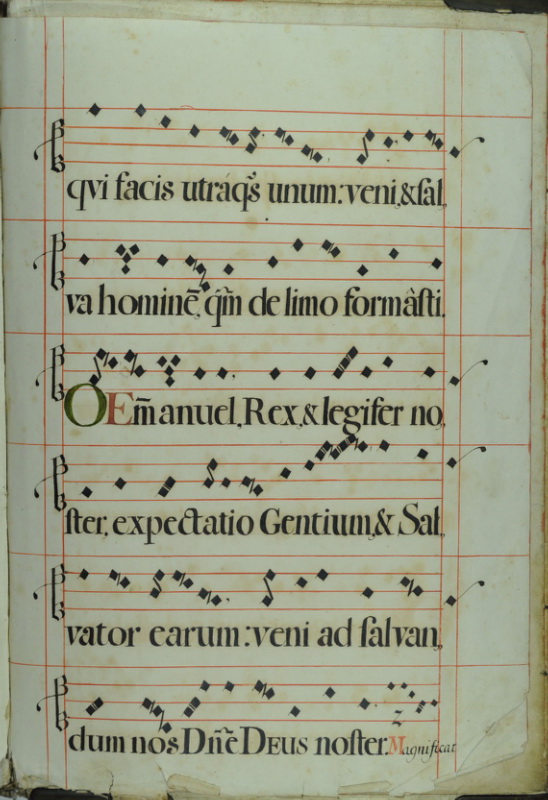 qvi facis utráq̃s unum: veni, & ſal,
va hominẽ, q̃m de limo formâſti.
O Em̃anuel, Rex, & legifer no,
ſter, expectatio Gentium, & Sal,
vator earum: veni ad ſalvan,
dum nos Dn̄e Deus noſter. Magnificat